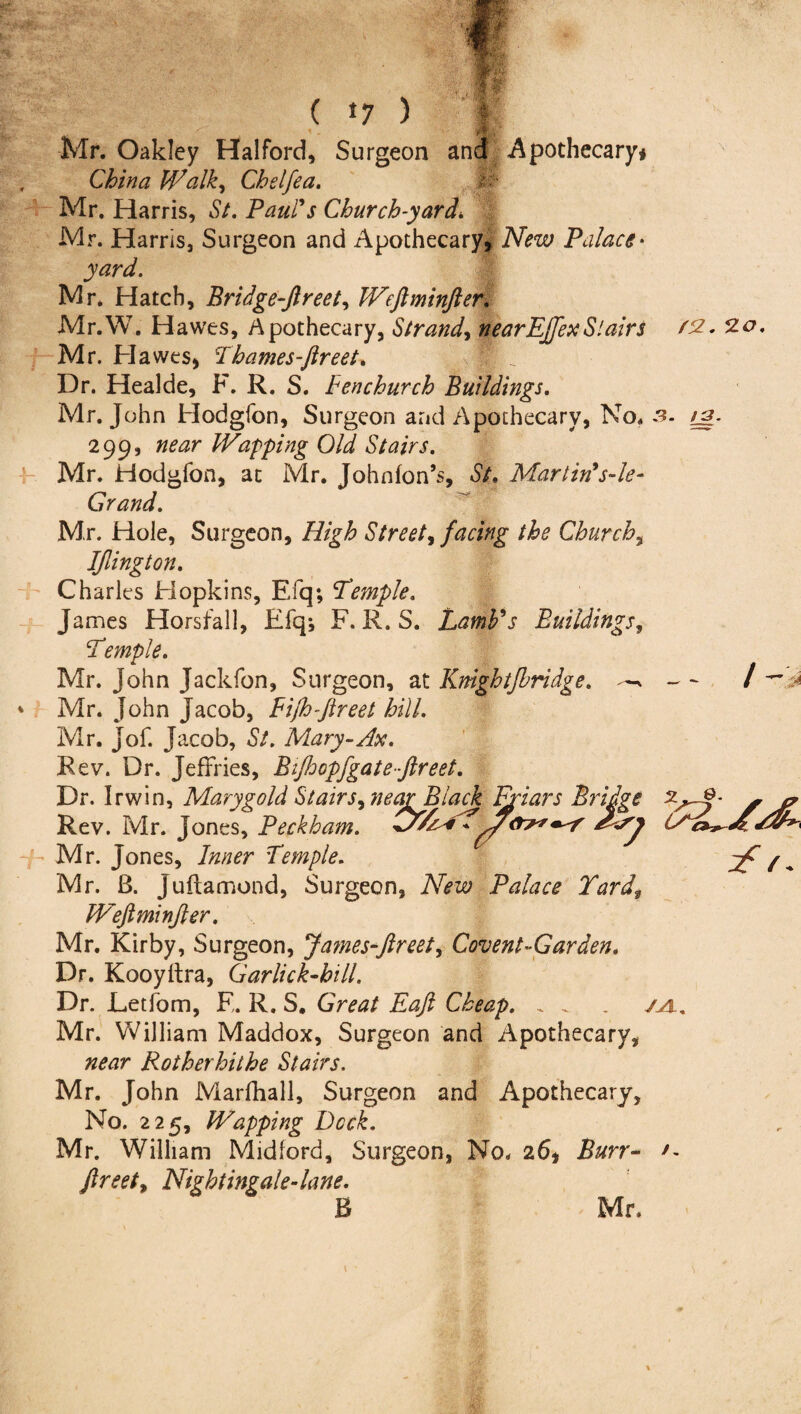 ( 17 )
Mr. Oakley Halford, Surgeon and Apothecary,
China Walk, Chelſea.
Mr. Harris, St. Paul's Church-yard.
Mr. Harris, Surgeon and Apothecary, New Palace-
yard.
Mr. Hatch, Bridge-ſtreet, Weſtminſter.
Mr. W. Hawes, Apothecary, Strand, near Eſſex Stairs 12. 20.
Mr. Hawes, Thames-ſtreet.
Dr. Healde, F. R. S. Fenchurch Buildings.
Mr. John Hodgſon, Surgeon and Apothecary, No. 3. 13.
299, near Wapping Old Stairs.
Mr. Hodgſon, at Mr. Johnſon's, St. Martin's-le-
Grand.
Mr. Hole, Surgeon, High Street, facing the Church,
Iſlington.
Charles Hopkins, Eſq; Temple.
James Horsfall, Eſq; F. R. S. Lamb's Buildings,
Temple.
Mr. John Jackſon, Surgeon, at Knightſbridge. - - 1 -
Mr. John Jacob, Fiſh-ſtreet hill.
Mr. Joſ. Jacob, St. Mary-Ax.
Rev. Dr. Jeffries, Biſhopſgate-ſtreet.
Dr. Irwin, Marygold Stairs, near Black Friars Bridge
Rev. Mr. Jones, Peckham.
Mr. Jones, Inner Temple.
Mr. B. Juſtamond, Surgeon, New Palace Yard,
Weſtminſter.
Mr. Kirby, Surgeon, James-ſtreet, Covent-Garden.
Dr. Kooyſtra, Garlick-hill.
Dr. Letſom, F. R. S. Great Eaſt Cheap. . . .
Mr. William Maddox, Surgeon and Apothecary,
near Rotherhithe Stairs.
Mr. John Marſhall, Surgeon and Apothecary,
No. 225, Wapping Dock.
Mr. William Midford, Surgeon, No. 26, Burr- 1-
ſtreet, Nightingale-lane.
B Mr.